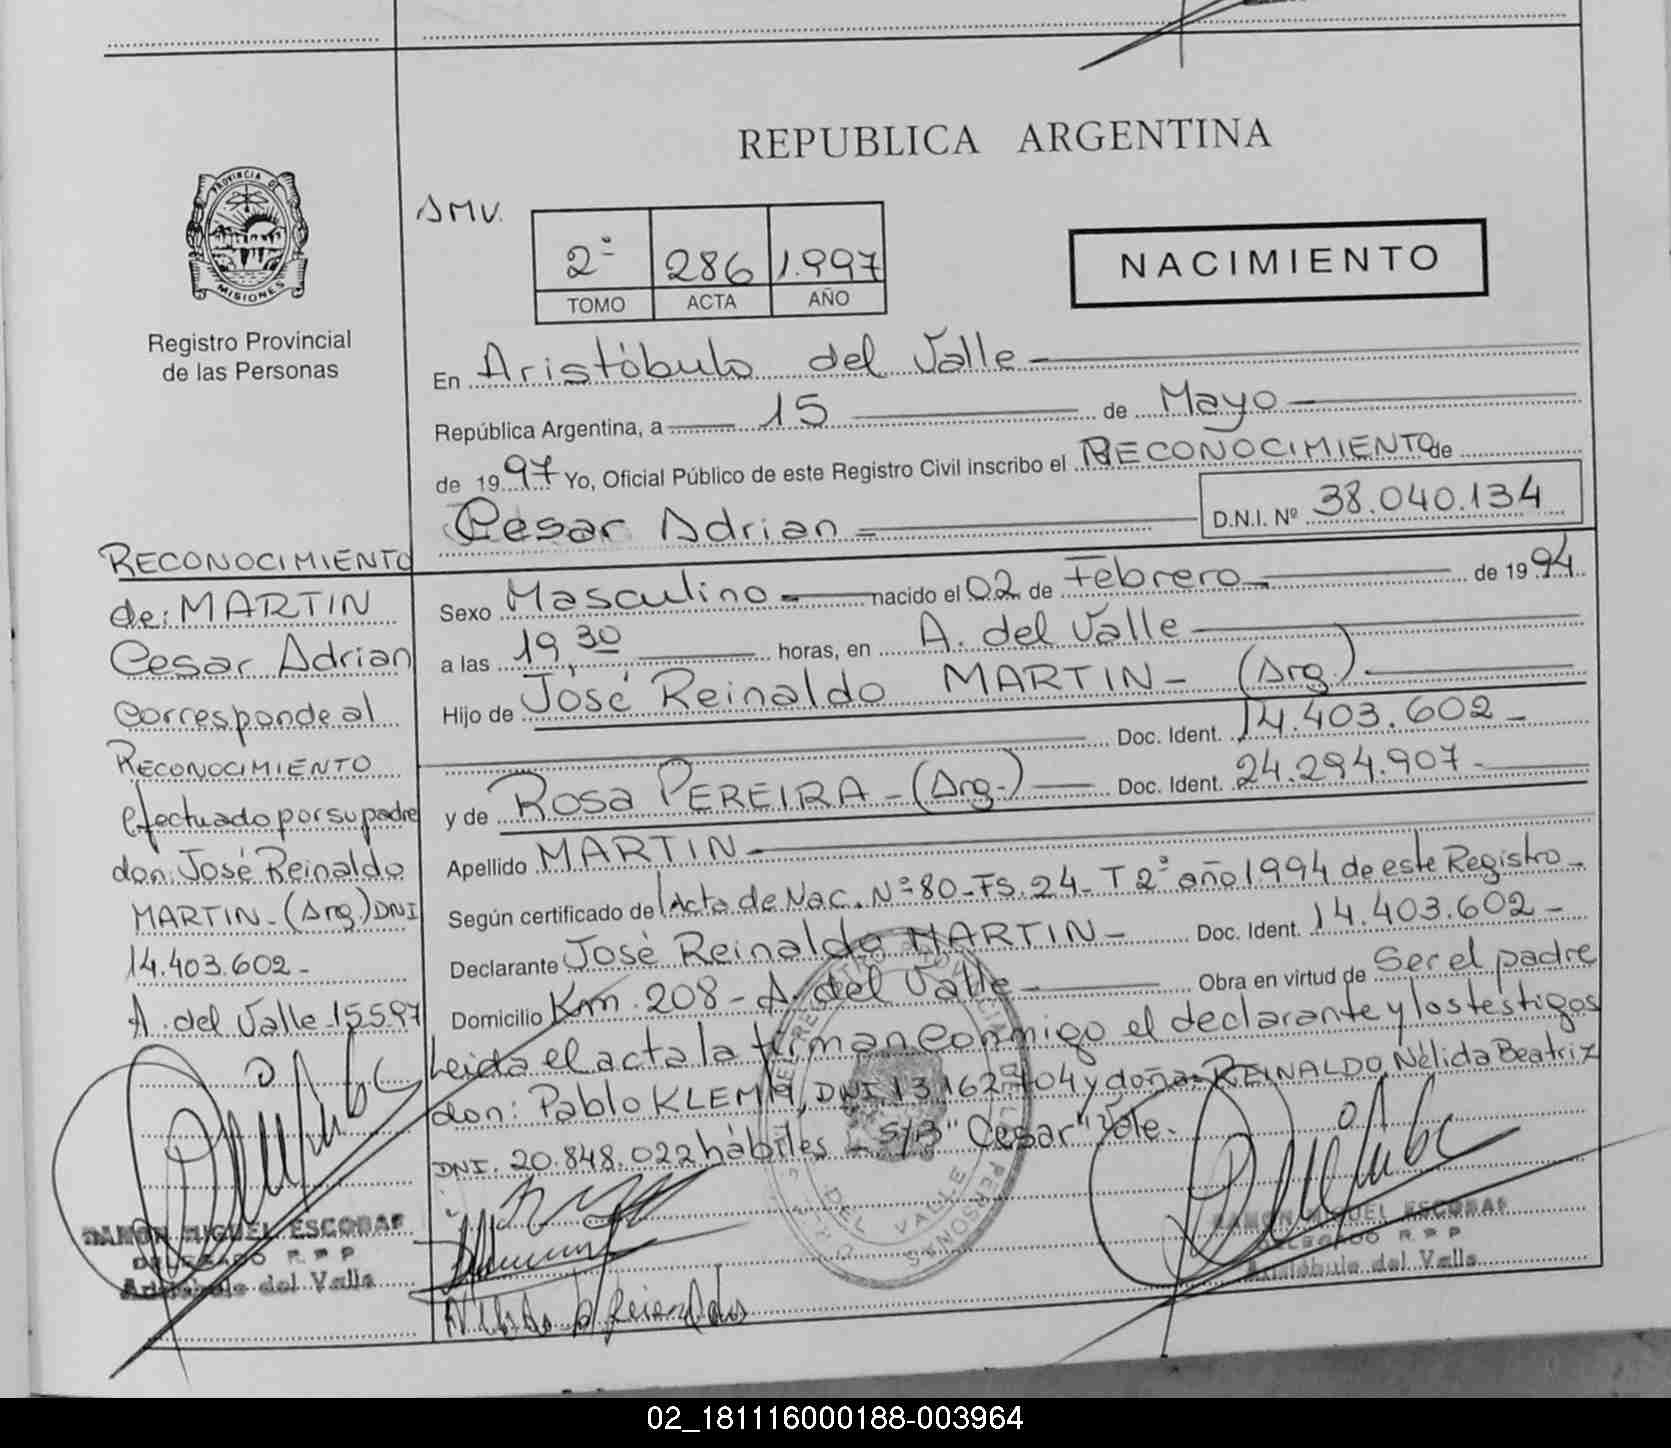 REPUBLICA ARGENTINA
PROVINCIA DE
MISIONES
Registro Provincial
de las Personas
SMV.
2º 286 1.997
TOMO ACTA AÑO
NACIMIENTO
En Aristóbulo del Valle
República Argentina, a 15 de Mayo
de 1997 Yo, Oficial Público de este Registro Civil inscribo el RECONOCIMIENTO de
Cesar Adrian D.N.I. Nº 38.040.134
Sexo Masculino nacido el 02 de Febrero de 1994
a las 19,30 horas, en A. del Valle
Hijo de José Reinaldo MARTIN - (Arg.)
Doc. Ident. 14.403.602 -
y de Rosa PEREIRA - (Arg.) Doc. Ident. 24.294.907 -
Apellido MARTIN
Según certificado de Acta de Nac. Nº 80 - FS. 24 - T 2º año 1994 de este Registro -
Declarante José Reinaldo MARTIN - Doc. Ident. 14.403.602 -
Domicilio Km. 208 - A. del Valle - Obra en virtud de Ser el padre
Leida el acta la firman conmigo el declarante y los testigos
don: Pablo KLEMM, DNI 13.162.704 y doña: REINALDO, Nélida Beatriz
DNI. 20.848.022 hábiles - S/B "Cesar" Vale.
RECONOCIMIENTO
de: MARTIN
Cesar Adrian
Corresponde al
RECONOCIMIENTO
efectuado por su padre
don: José Reinaldo
MARTIN - (Arg.) DNI
14.403.602 -
A. del Valle 15.5.97
RAMON MIGUEL ESCOBAR
DELEGADO R. P. P
Aristóbulo del Valle
RAMON MIGUEL ESCOBAR
DELEGADO R. P. P
Aristóbulo del Valle
DEL VALLE
PERSONAS
02_181116000188-003964